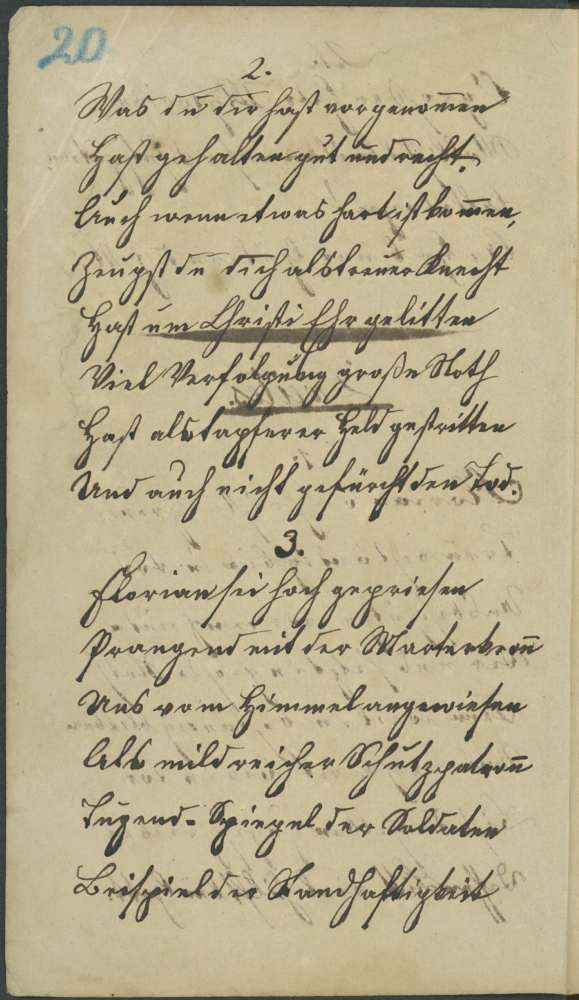 20
2.
Was du dir hast vorgenom̄en
Hast gehalten gut und recht.
Auch wenn etwas hart ist kom̄en,
Zeugst du dich als treuer Knecht
Hast um Christi Ehr gelitten
Viel Verfolgung große Noth
Hast als tapferer Held gestritten
Und auch nicht gefürcht den Tod.
3.
Florian sei hoch gepriesen
Prangend mit der Marterkron̄
Uns vom Himmel angewiesen
Als mildreicher Schutzpatron̄
Tugend-Spiegel der Soldaten
Beispiel der Standhaftigkeit